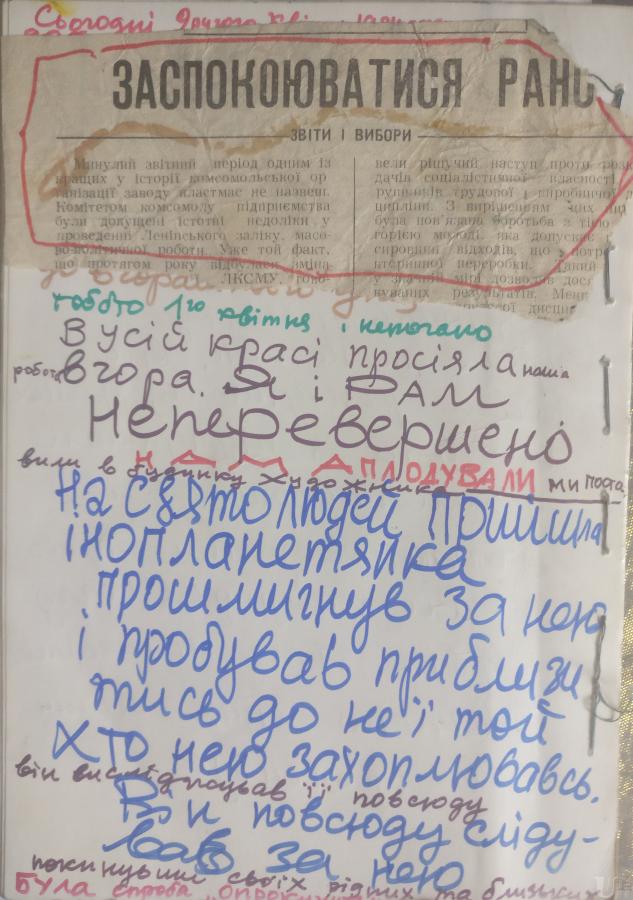 Сьогодні
ЗАСПОКОЮВАТИСЯ РАНО
ЗВІТИ І ВИБОРИ
Минулий звітний період одним із
кращих у історії комсомольської ор-
ганізації заводу пластмас не назвеш.
Комітетом комсомолу підприємства
були допущені істотні недоліки у
проведенні Ленінського заліку, масо-
во-політичної роботи. Уже той факт,
що протягом року відбулася зміна
ЛКСМУ, гово-
вели рішучий наступ проти роз-
дачів соціалістичної власності,
рушників трудової і виробничої
ципліни. З вирішенням цих
була пов'язана боротьба з тією
горією молоді, яка допускає
сировини відходів, що
вторинної переробки. Такий
у значній мірі дозволив
куваних результатів. Менш
дисци
тобто 1го квітня і непогано
В усій красі просіяла наша
робота вгора. Я і РАМ
Неперевершено
НАМ АПЛОДУВАЛИ ми поста
вили в будинку художника
На свято людей прийшла
інопланетянка
прошмигнув за нею
і пробував приблизи
тись до неї той
хто нею захоплювавсь.
він вислідковував її повсюду
Він повсюду сліду-
вав за нею
покинувши своїх рідних та близьких
БУЛА спроба